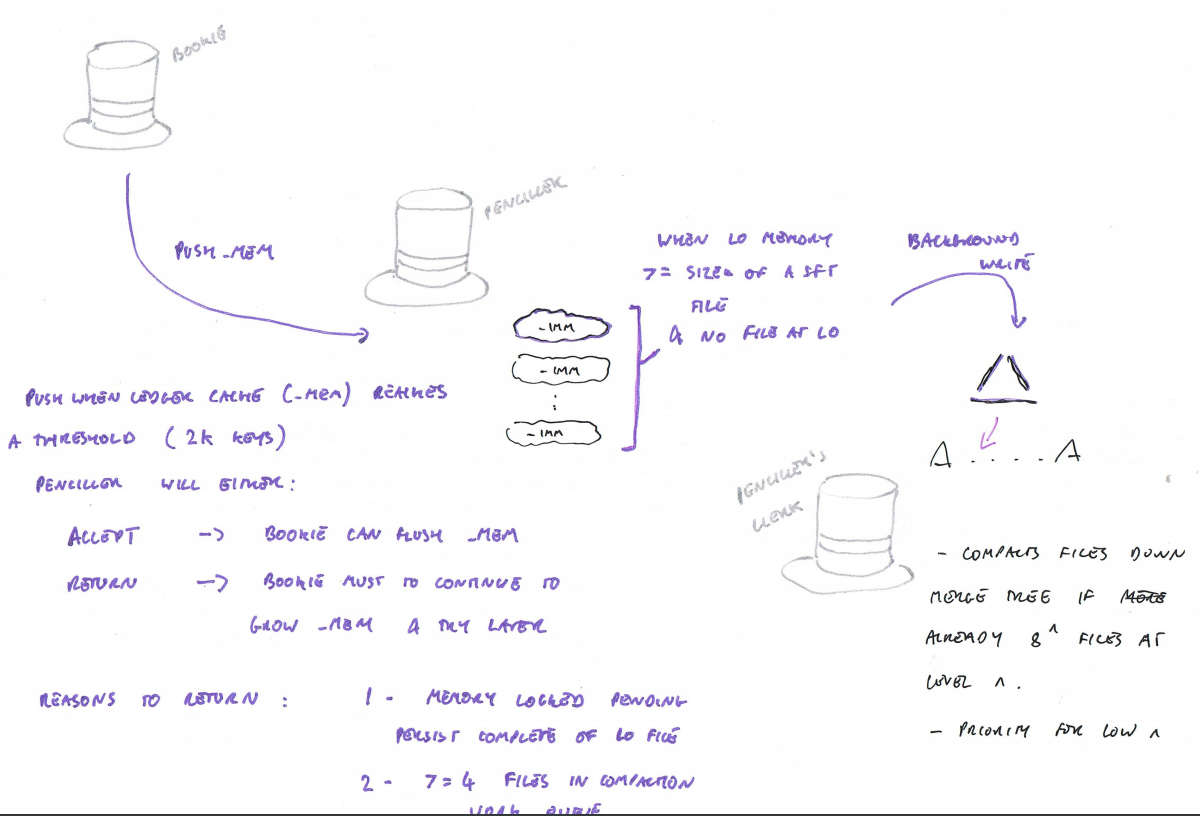 BOOKIE
PENCILLER
PUSH_MEM
WHEN L0 MEMORY
>= SIZE OF A SFT
FILE
& NO FILE AT L0
BACKGROUND
WRITE
_IMM
_IMM
:
_IMM
PUSH WHEN LEDGER CACHE (_MEM) REACHES
A THRESHOLD (2K KEYS)
PENCILLER WILL EITHER:
ACCEPT -> BOOKIE CAN FLUSH _MEM
RETURN -> BOOKIE MUST TO CONTINUE TO
GROW _MEM & TRY LATER
REASONS TO RETURN : 1 - MEMORY LOCKED PENDING
PERSIST COMPLETE OF L0 FILE
2 - >= 4 FILES IN COMPACTION
WORK QUEUE
PENCILLER'S
CLERK
- COMPACTS FILES DOWN
MERGE TREE IF MORE
ALREADY 8^n FILES AT
LEVEL n.
- PRIORITY FOR LOW n